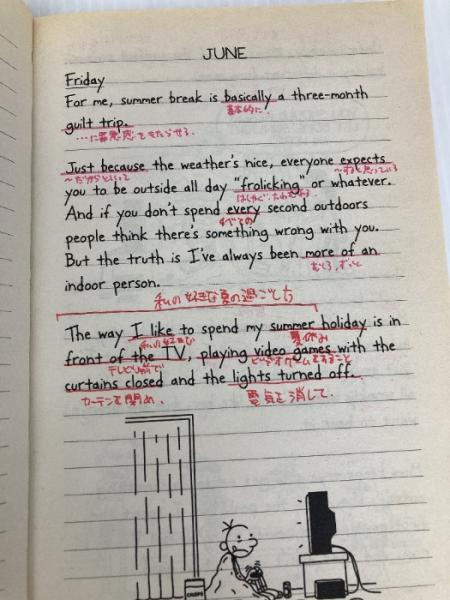 JUNE
Friday
For me, summer break is basically a three-month
基本的に
guilt trip.
…に罪悪感をもたらせる.
Just because the weather's nice, everyone expects
～だからといって
you to be outside all day "frolicking" or whatever.
And if you don't spend every second outdoors
すべての
people think there's something wrong with you.
But the truth is I've always been more of an
むしろ、
indoor person.
私の好きな夏の過ごし方
The way I like to spend my summer holiday is in
私の好きな
夏休み
front of the TV, playing video games with the
テレビの前で
ビデオゲームをすること
curtains closed and the lights turned off.
カーテンを閉め、
電気を消して.
CRISPS